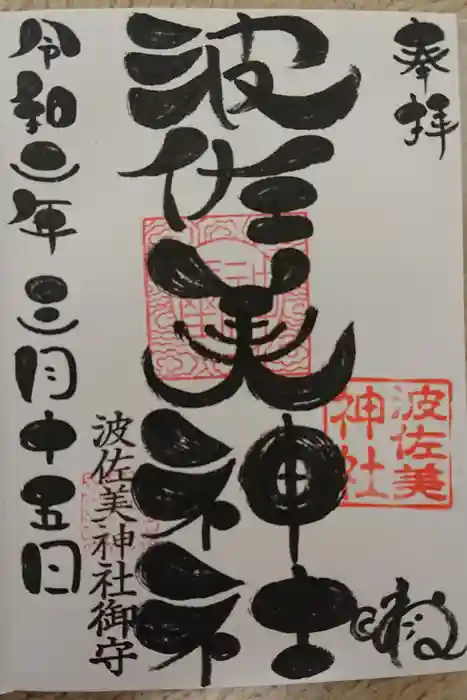 奉拝
波佐美
神社
波佐美神社
波佐美神社御守
令和二年三月十五日